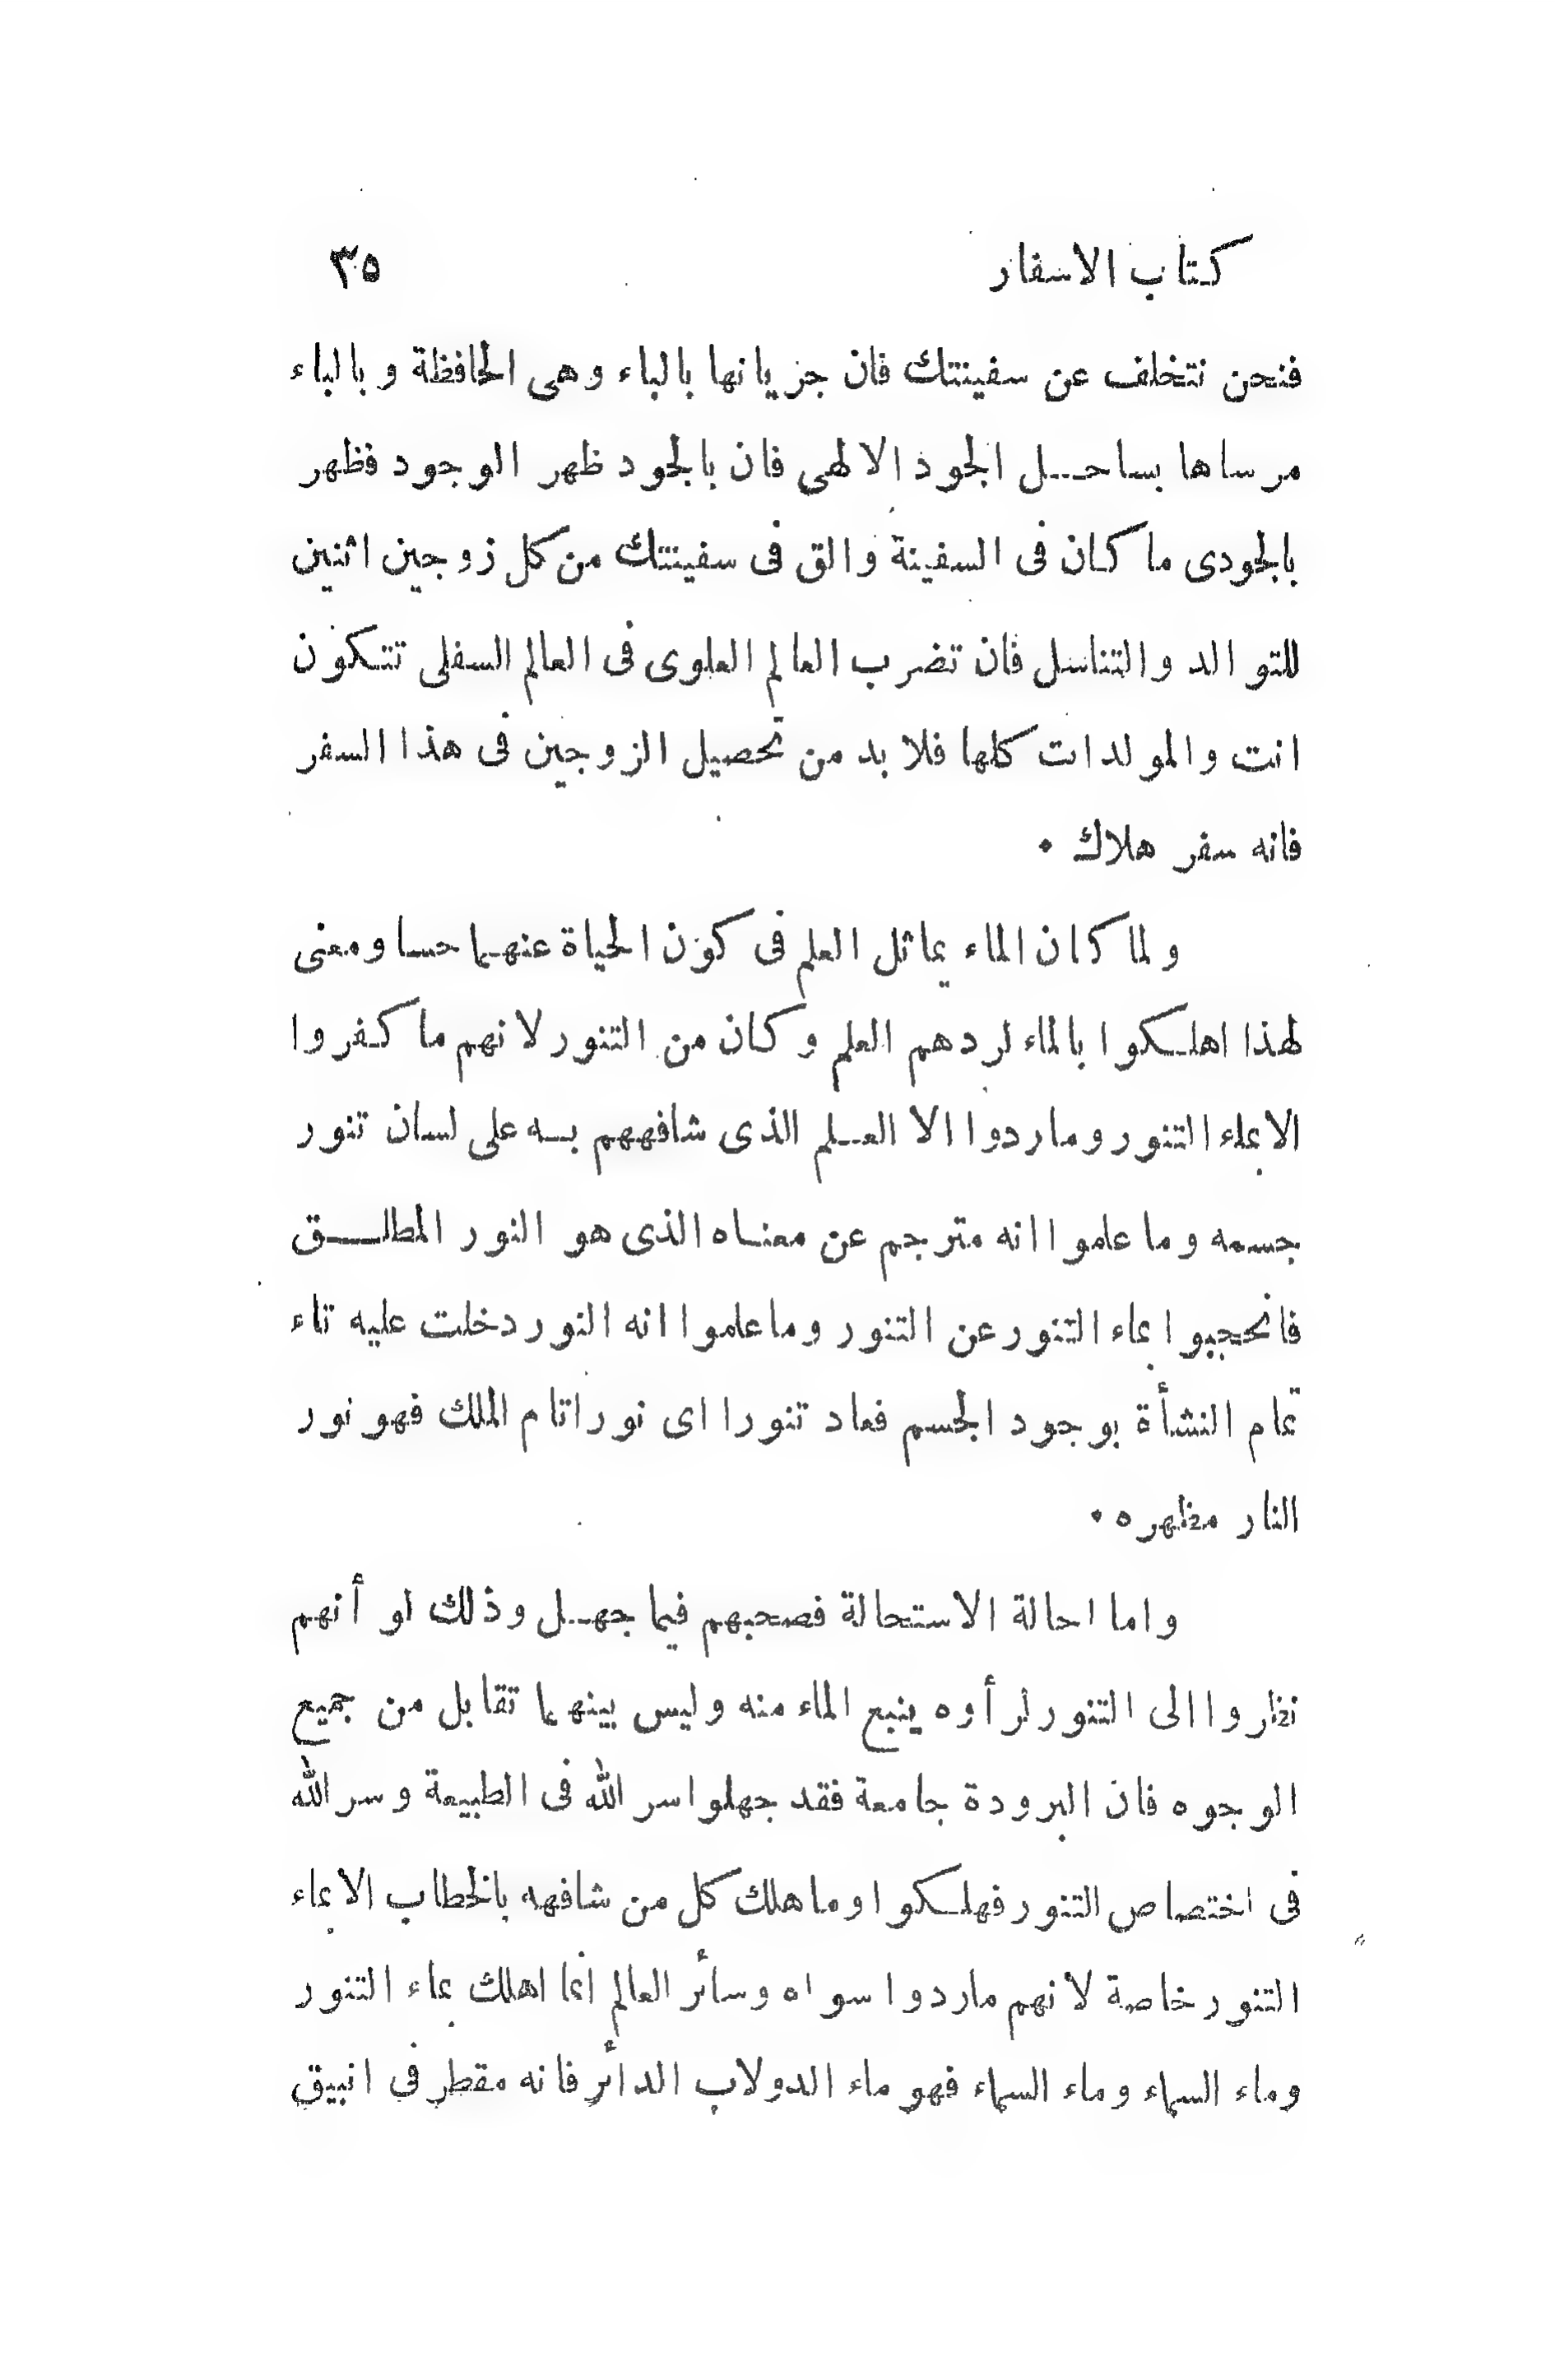 كتاب الاسفار ٣٥
فنحن نتخلف عن سفينتك فان جريانها بالباء وهى الحافظة وبالباء
مرساها بساحل الجود الالهى فان بالجود ظهر الوجود فظهر
بالجودى ما كان فى السفينة والق فى سفينتك من كل زوجين اثنين
للتوالد والتناسل فان تضرب العالم العلوى فى العالم السفلى تتكون
انت والمولدات كلها فلا بد من تحصيل الزوجين فى هذا السفر
فانه سفر هلاك ٠
ولما كان الماء يماثل العلم فى كون الحياة عنهما حسا ومعنى
لهذا اهلكوا بالماء لردهم العلم وكان من التنور لانهم ما كفروا
الا بماء التنور وما ردوا الا العلم الذى شافههم به على لسان تنور
جسمه وما علموا انه مترجم عن معناه الذى هو النور المطلق
فانحجبوا بماء التنور عن التنور وما علموا انه النور دخلت عليه تاء
تمام النشأة بوجود الجسم فعاد تنورا اى نورا تام الملك فهو نور
النار مظهره ٠
واما احالة الاستحالة فصحبهم فيما جهل وذلك لو أنهم
نظروا الى التنور لرأوه ينبع الماء منه وليس بينهما تقابل من جميع
الوجوه فان البرودة جامعة فقد جهلوا سر الله فى الطبيعة وسر الله
فى اختصاص التنور فهلكوا وما هلك كل من شافهه بالخطاب الا بماء
التنور خاصة لانهم ما ردوا سواه وسائر العالم انما اهلك بماء التنور
وماء السماء وماء السماء فهو ماء الدولاب الدائر فانه مقطر فى انبيق